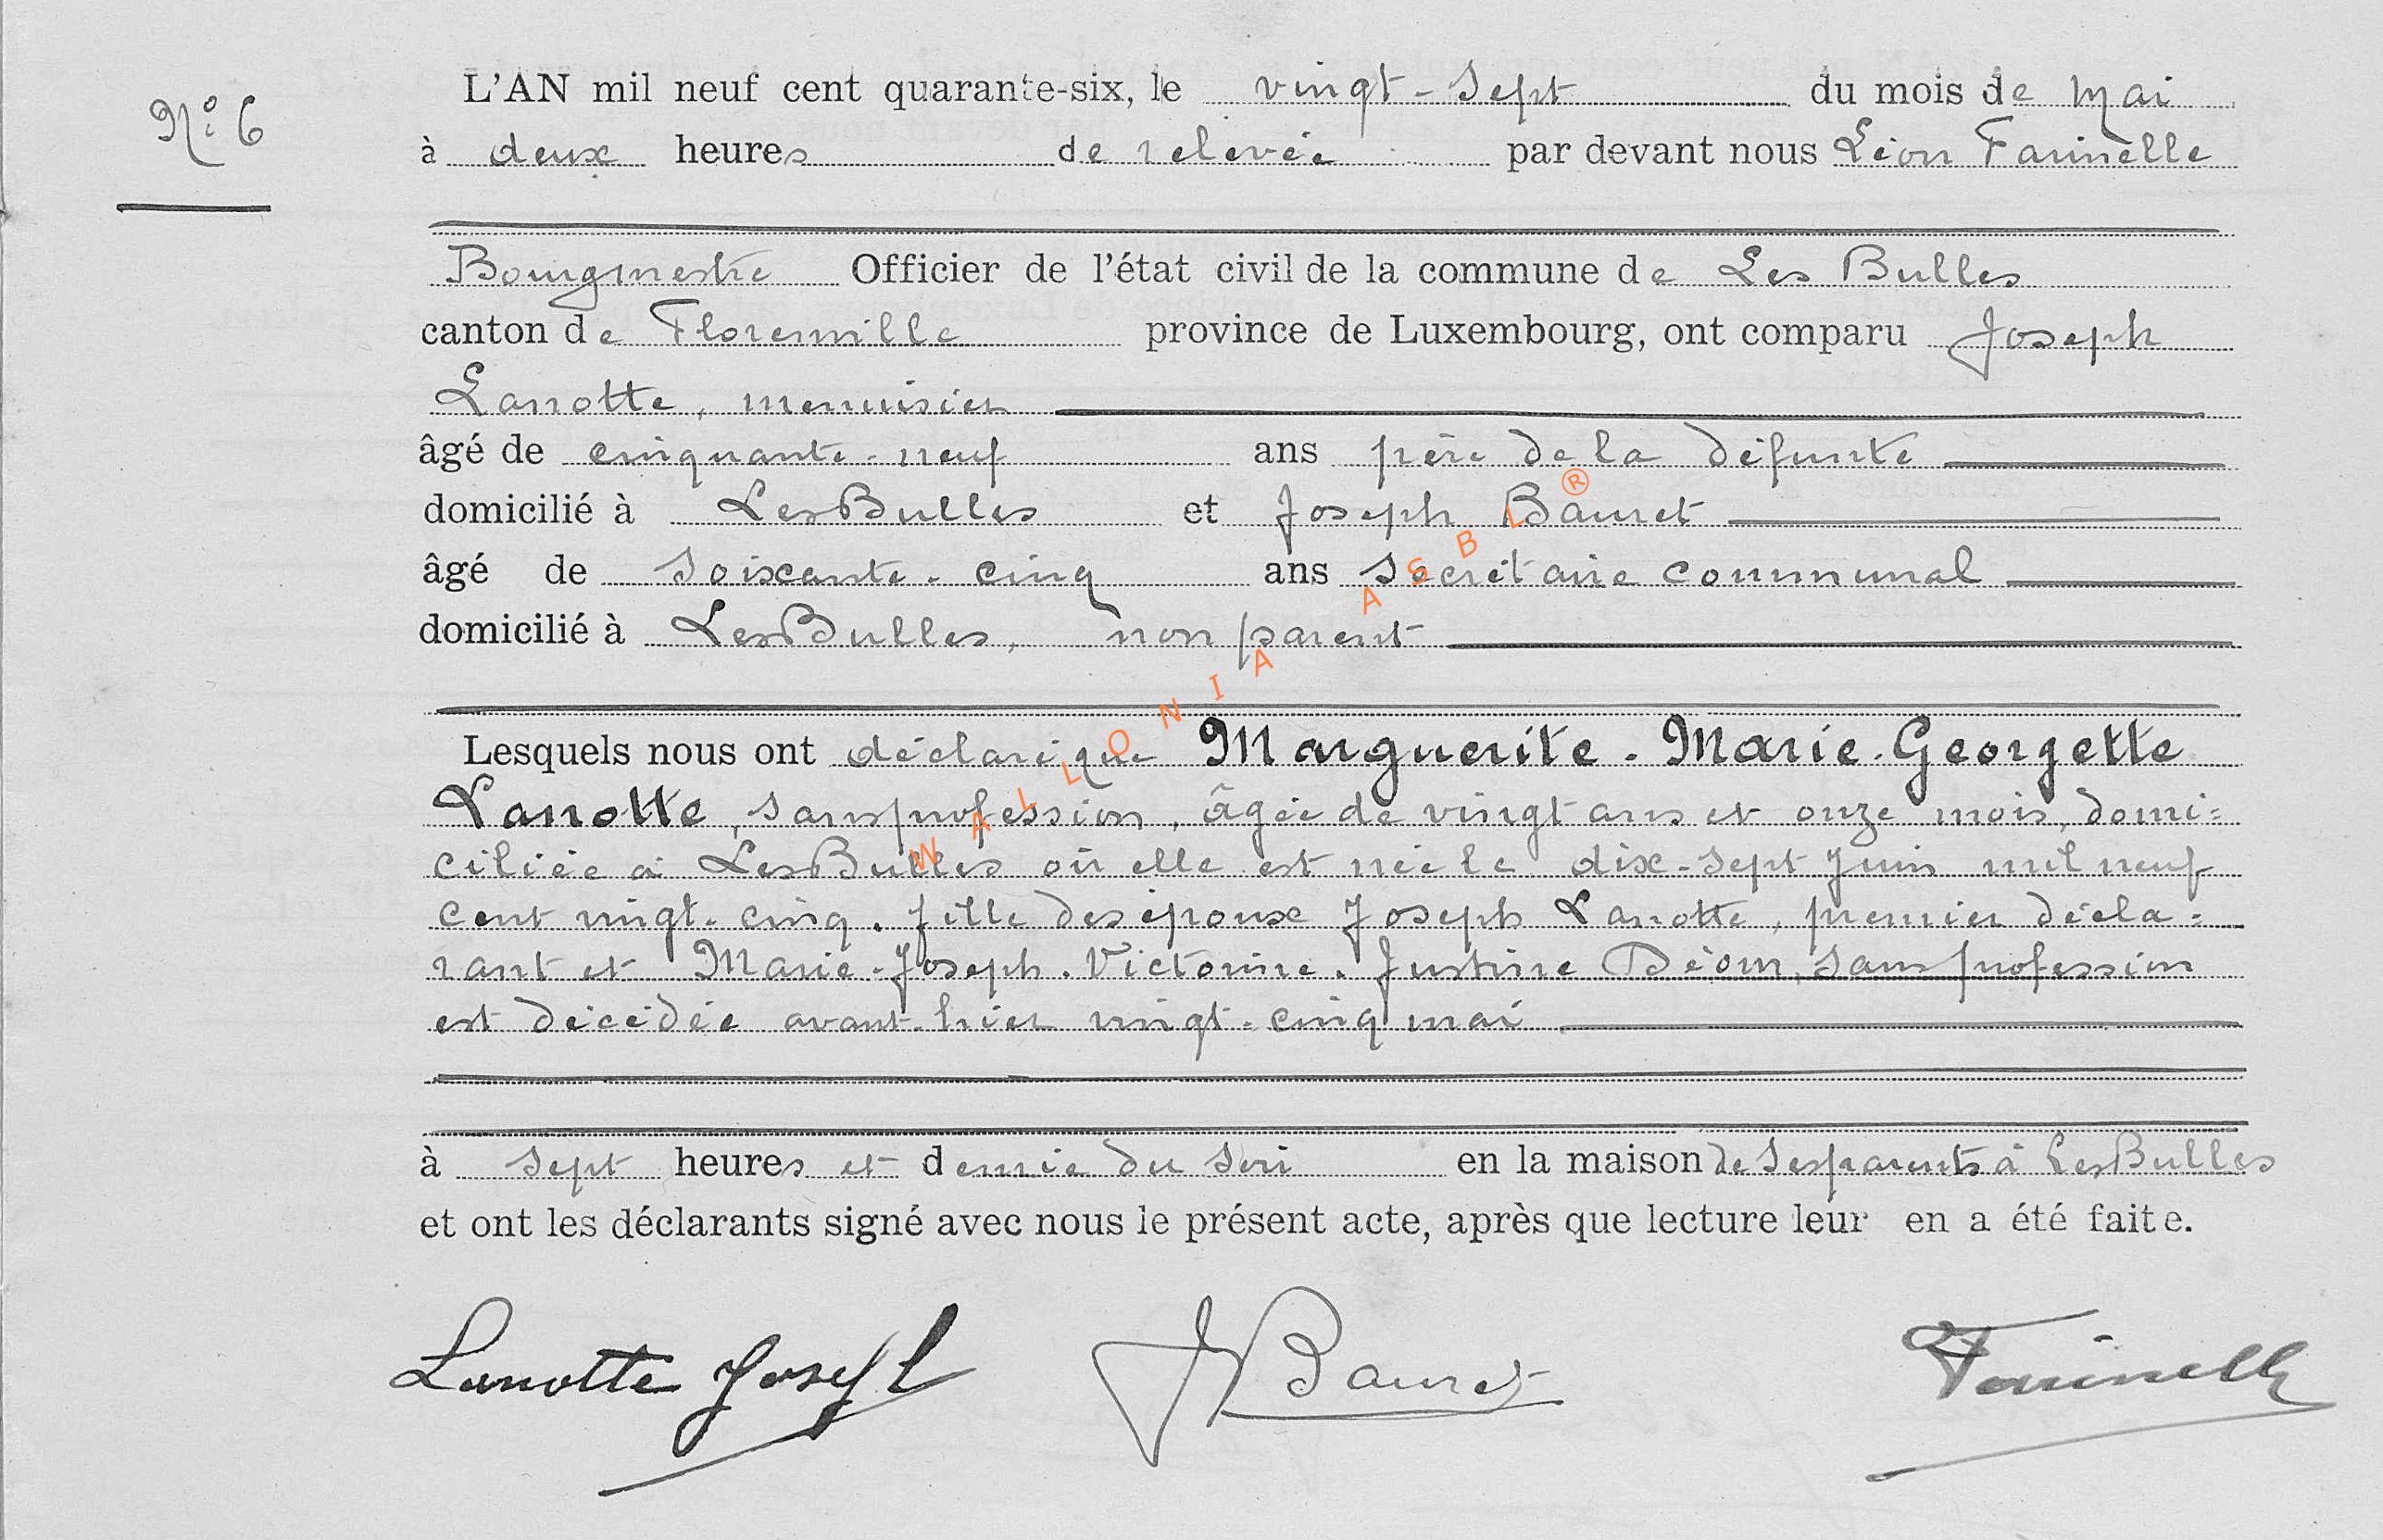 N° 6
L'AN mil neuf cent quarante-six, le vingt-sept du mois de mai
à deux heures de relevée par devant nous Léon Farinelle
Bourgmestre Officier de l'état civil de la commune de Les Bulles
canton de Florenville province de Luxembourg, ont comparu Joseph
Lanotte, menuisier
âgé de cinquante-neuf ans père de la défunte
domicilié à Les Bulles et Joseph Bauret
âgé de soixante-cinq ans secrétaire communal
domicilié à Les Bulles, non parent
Lesquels nous ont déclaré que Marguerite-Marie-Georgette
Lanotte, sans profession, âgée de vingt ans et onze mois, domi=
ciliée à Les Bulles où elle est née le dix-sept Juin mil neuf
cent vingt-cinq, fille des époux Joseph Lanotte, premier décla=
rant et Marie-Joseph-Victorine-Justine Déom, sans profession
est décédée avant-hier vingt-cinq mai
à sept heures et demie du soir en la maison de ses parents à Les Bulles
et ont les déclarants signé avec nous le présent acte, après que lecture leur en a été faite.
Lanotte Joseph J Bauret Farinelle
WALLONIA ASBL ®